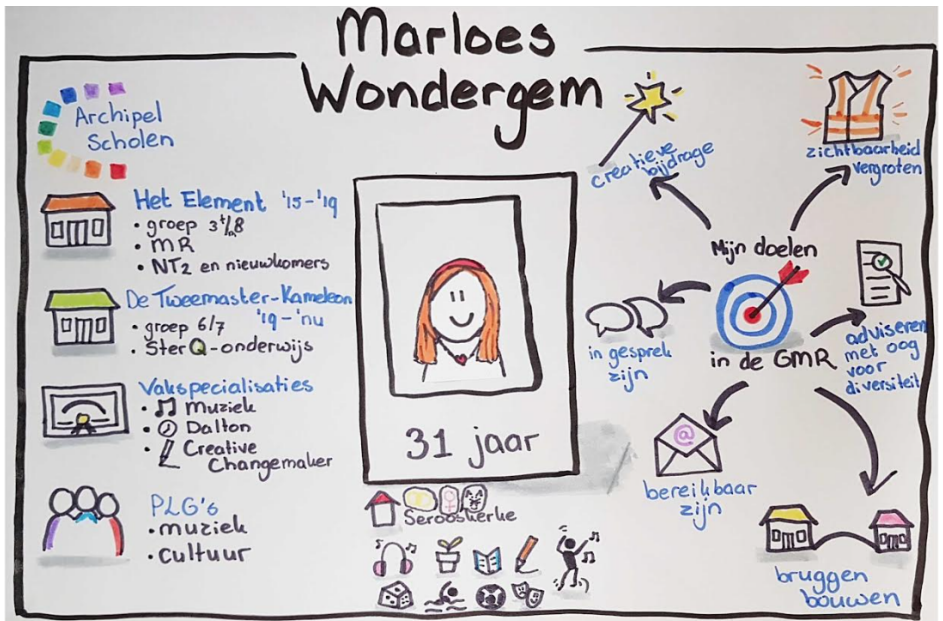 Marloes
Wondergem
Archipel
Scholen
Het Element '15-'19
• groep 3 t/m 8
• MR
• NT2 en nieuwkomers
De Tweemaster-Kameleon
'19-'nu
• groep 6/7
• SterQ-onderwijs
Vakspecialisaties
• muziek
• Dalton
• Creative
Changemaker
PLG's
• muziek
• cultuur
31 jaar
Serooskerke
creatieve
bijdrage
zichtbaarheid
vergroten
Mijn doelen
in de GMR
in gesprek
zijn
adviseren
met oog
voor
diversiteit
@
bereikbaar
zijn
bruggen
bouwen